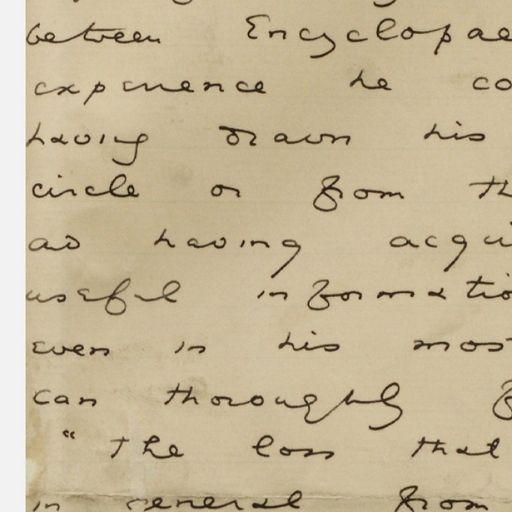 between Encyclopae
experience he co
having drawn his
circle or from th
as having acqui
useful informatio
even in his mos
can thoroughly
"The loss that
in general from